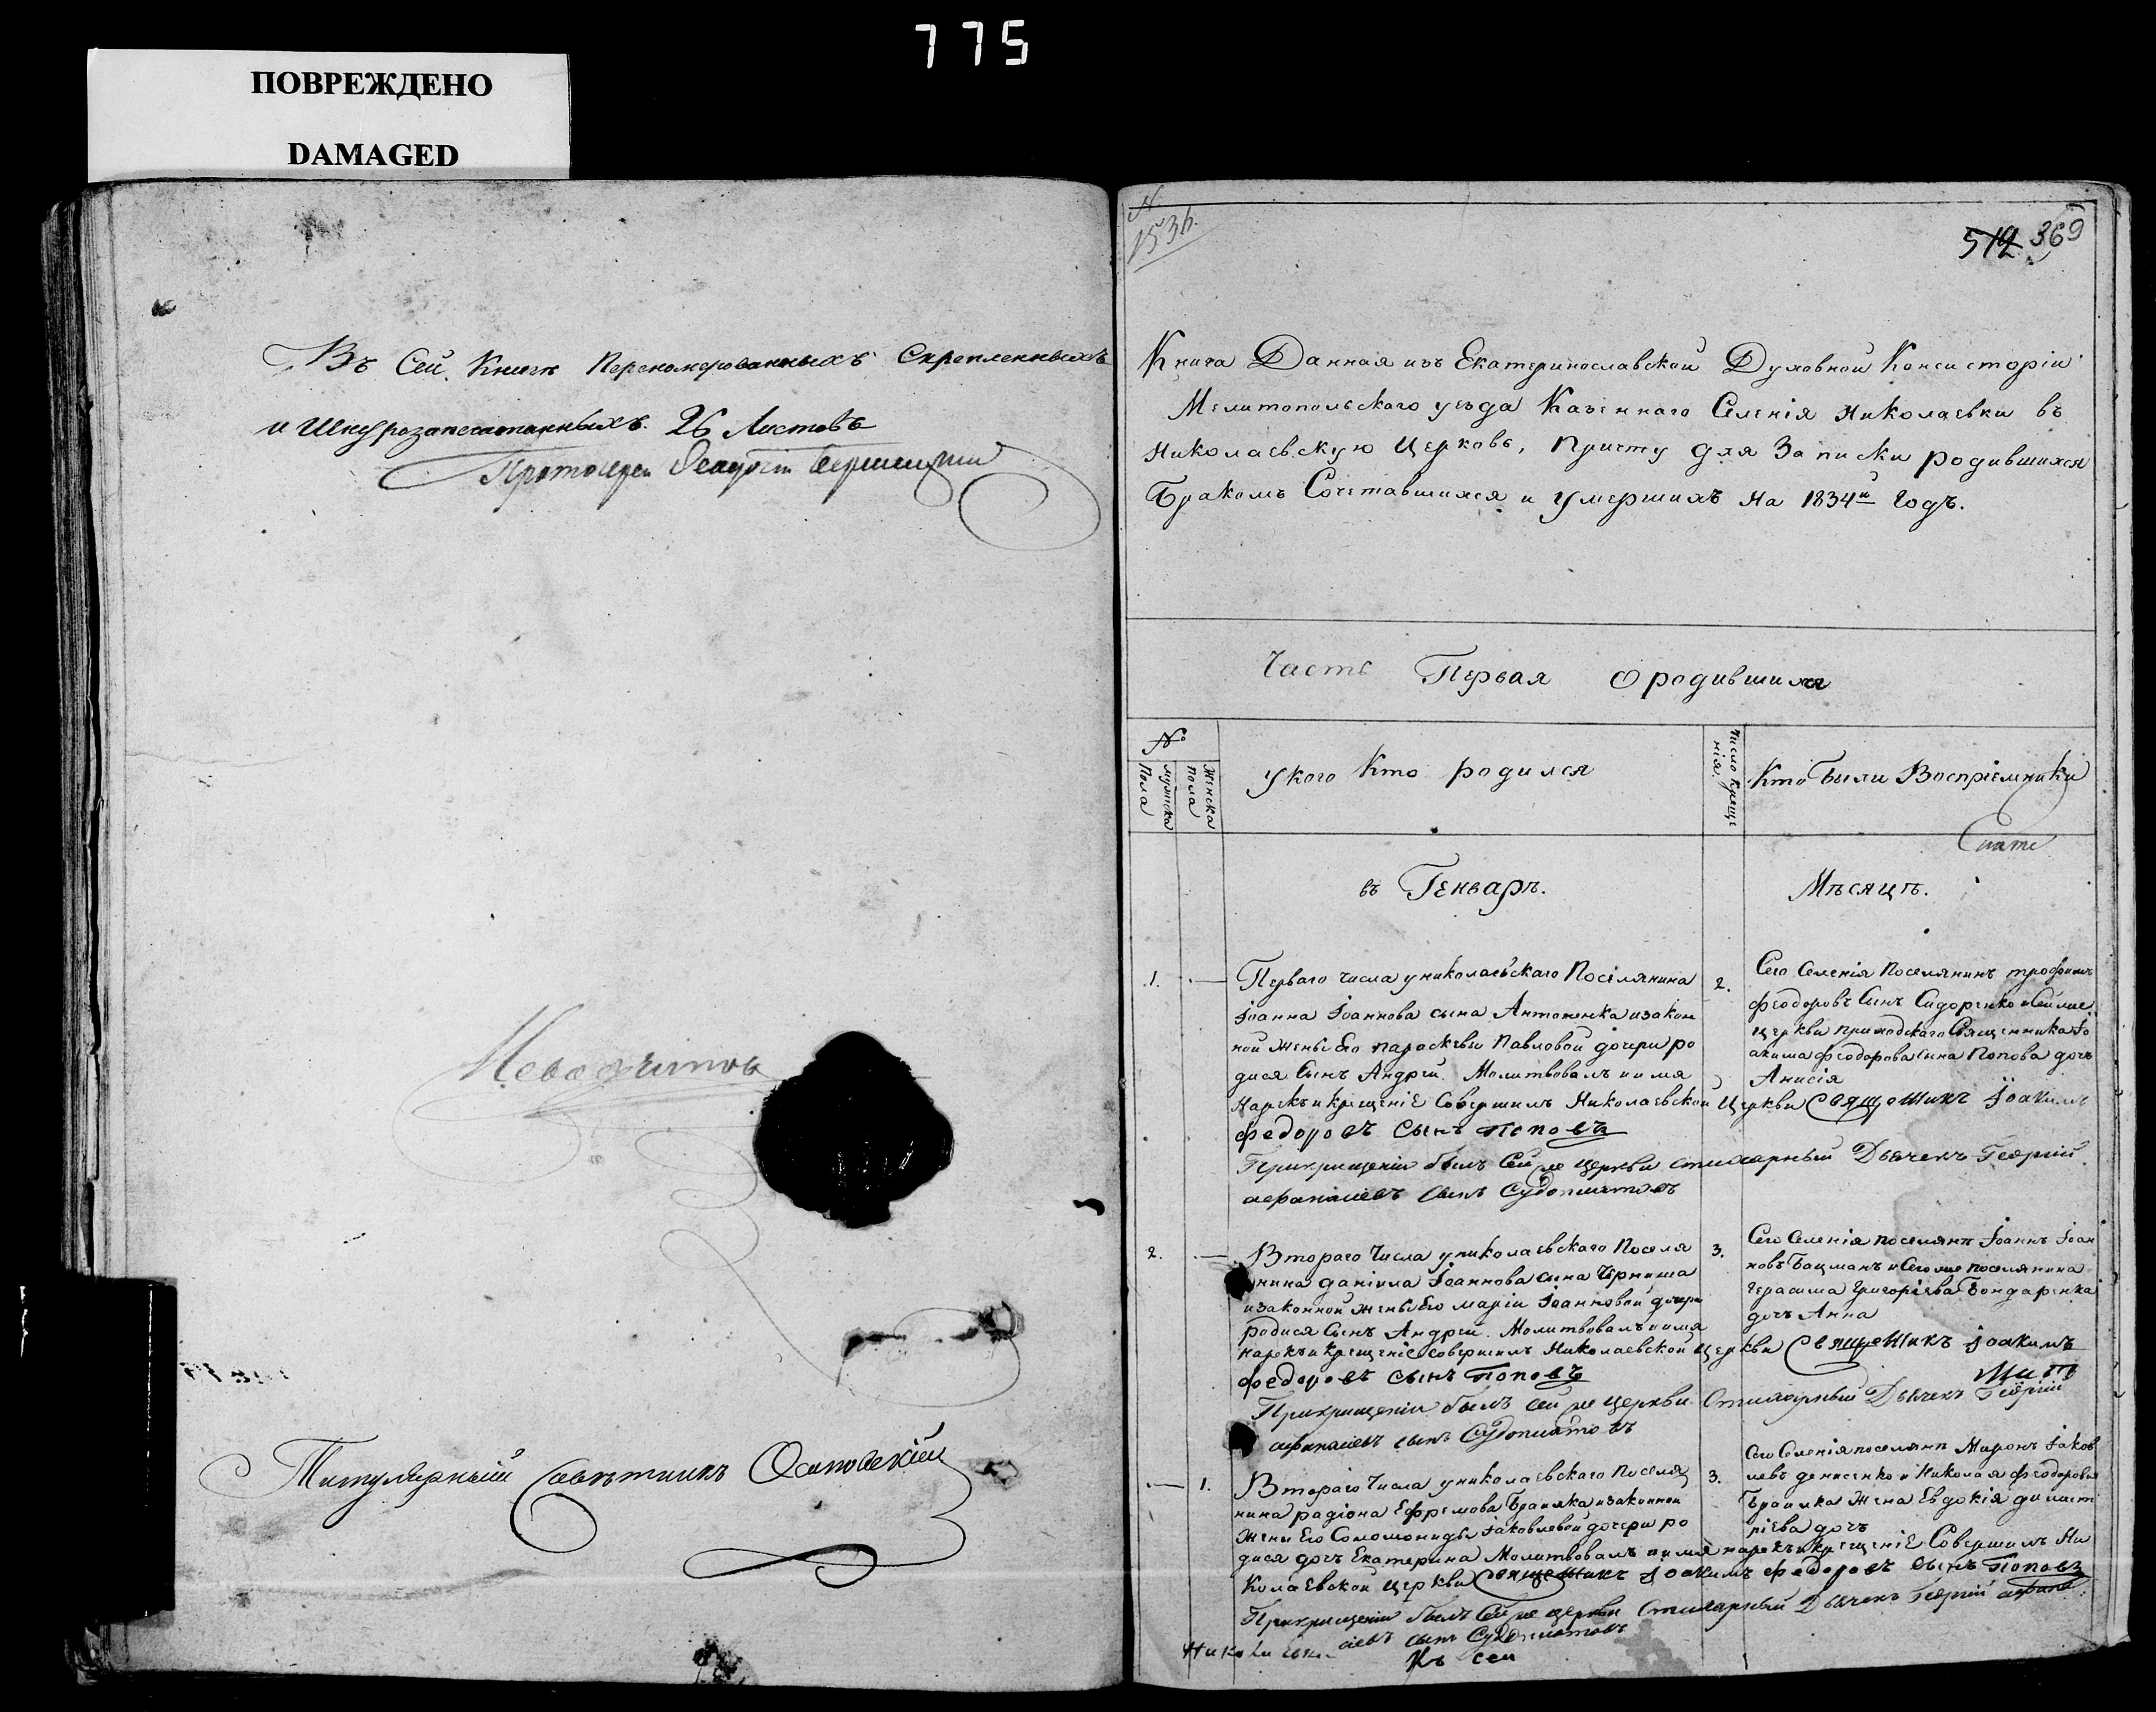 775
ПОВРЕЖДЕНО
DAMAGED
Въ Сей Книгѣ Переномерованныхъ Скрепленныхъ
и Шнурозапечатанныхъ 26 Листовъ
Протоиерей
Титулярный Советникъ Осиповскiй
№
1536.
512 369
Книга Данная изъ Екатеринославской Духовной Консисторiи
Мелитопольскаго уезда Казеннаго Селенiя Николаевки въ
Николаевскую Церковь, Причту для Записки родившихся
Бракомъ Сочетавшихся и Умершихъ На 1834й Годъ.
Часть Первая о родившихся
№
мужска Пола
Женска пола
У кого Кто родился
Число Крещенiя
Кто Были Воспрiемники
въ Генварѣ. Мѣсяцѣ.
1. — Перваго числа у николаевскаго Поселянина
Iоанна Iоаннова сына Антоненка и закон
ной жены Его параскевы Павловой дочери ро
дися Сынъ Андрей. Молитвовалъ и имя
Нарекъ и крещенiЕ Совершилъ Николаевской Церкви Священникъ Iоакимъ
федоровъ сынъ поповъ
При крещенiи былъ Сей же церкви стихарный Дьячекъ Георгiй
афанасiевъ сынъ
2.
Сего Селенiя Поселянинъ трофимъ
феодоровъ Сынъ Сидоренко и Сей же
церкви приходскаго Священника Iо
акима феодорова сина Попова дочь
Анисiя
2. — Втораго Числа у николаевскаго Поселя
нина данiила Iоаннова сына Черниша
и законной жены Его марiи Iоанновой дочери
родися Сынъ Андрей. Молитвовалъ и имя
нарекъ и крещенiе совершилъ Николаевской церкви Священникъ Iоакимъ
федоровъ сынъ поповъ
При крещенiи былъ сей же церкви Стихарный Дьячекъ Георгiй
афанасiевъ сынъ
3.
Сего Селенiя поселянъ Iоаннъ Iоан
новъ Бацманъ и Сего же поселянина
Герасима Григорiева Бондаренка
дочь Анна
— 1. Втораго Числа у николаевскаго Поселя
нина радiона Ефремова и законной
жены Его Соломониды Iаковлевой дочери ро
дися дочь Екатерина Молитвовалъ и имя нарекъ и крещенiЕ Совершилъ Ни
колаЕвской церкви Священникъ Iоакимъ федоровъ сынъ поповъ
При крещенiи былъ Сей же церкви Стихарный Дьячекъ Георгiй афана
сiевъ сынъ
3.
Сего Селенiя поселянъ Миронъ Iаков
левъ денисенко и Николая феодорова
жена Евдокiя
дочь
Къ сей